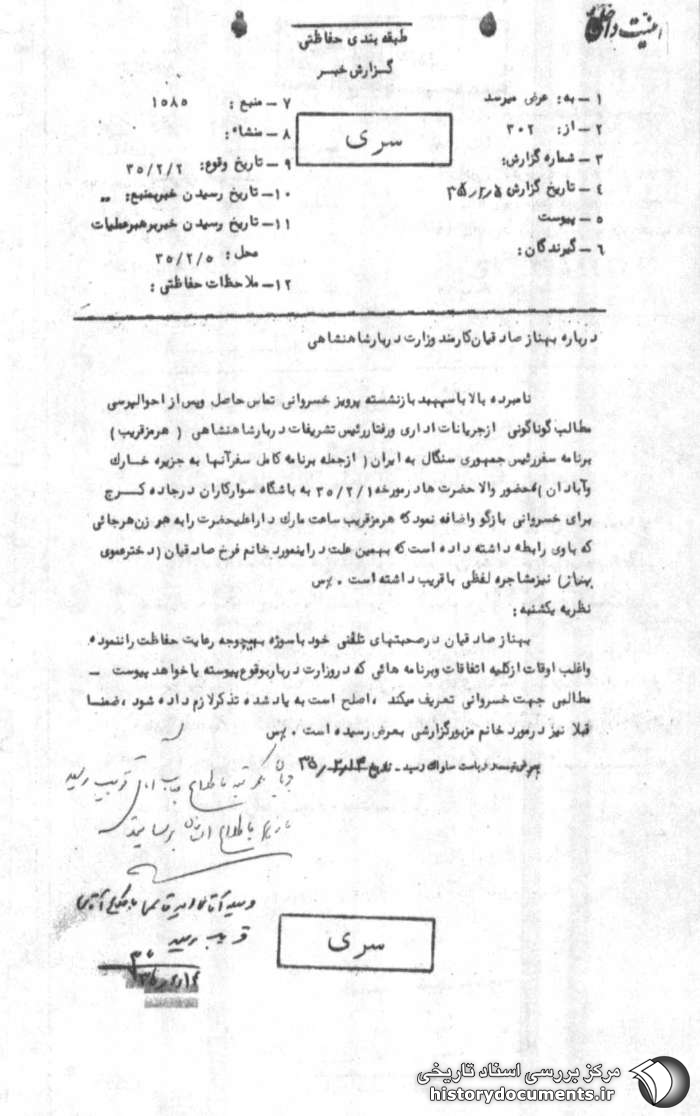 امنیت داخلی
طبقه بندی حفاظتی
گزارش خبر
۱ – به: عرض میرسد
۲ – از: ۳۰۲
۳ – شماره گزارش:
۴ – تاریخ گزارش ۳۵/۲/۵
۵ – پیوست
۶ – گیرندگان:
سری
۷ – منبع: ۱۰۸۵
۸ – منشاء:
۹ – تاریخ وقوع: ۳۵/۲/۲
۱۰ – تاریخ رسیدن خبر بمنبع: "
۱۱ – تاریخ رسیدن خبر برهبر عملیات
محل: ۳۵/۲/۵
۱۲ – ملاحظات حفاظتی:
درباره بهناز صادقیان کارمند وزارت دربار شاهنشاهی
نامبرده بالا با سپهبد بازنشسته پرویز خسروانی تماس حاصل وپس از احوالپرسی
مطالب گوناگونی از جریانات اداری ورفتار رئیس تشریفات دربار شاهنشاهی ( هرمز قریب )
برنامه سفر رئیس جمهوری سنگال به ایران ( ازجمله برنامه کامل سفر آنها به جزیره خارك
وآبادان ) حضور والا حضرت ها در مورخه ۳۵/۲/۱ به باشگاه سوارکاران در جاده کرج
برای خسروانی بازگو واضافه نمود که هرمز قریب ساعت مارك دار اعلیحضرت را به هر زن هرجائی
که باوی رابطه داشته داده است که بهمین علت در اینمورد خانم فرخ صادقیان ( دختر عموی
بهناز ) نیز مشاجره لفظی با قریب داشته است . ب س
نظریه یکشنبه :
بهناز صادقیان در صحبتهای تلفنی خود با سوژه بهیچوجه رعایت حفاظت را ننموده
واغلب اوقات از کلیه اتفاقات وبرنامه هائی که در وزارت دربار بوقوع پیوسته یا خواهد پیوست –
مطالبی جهت خسروانی تعریف میکند ، اصلح است به یاد شده تذکر لازم داده شود ، ضمنا
قبلا نیز در مورد خانم مزبور گزارشی بعرض رسیده است . ب س
بعرض تیمسار ریاست ساواك رسید – تاریخ ۳۵/۲/۱۴
باطلاع
قریب رسید
باطلاع
برسانید
قریب رسید
سری
مرکز بررسی اسناد تاریخی
historydocuments.ir